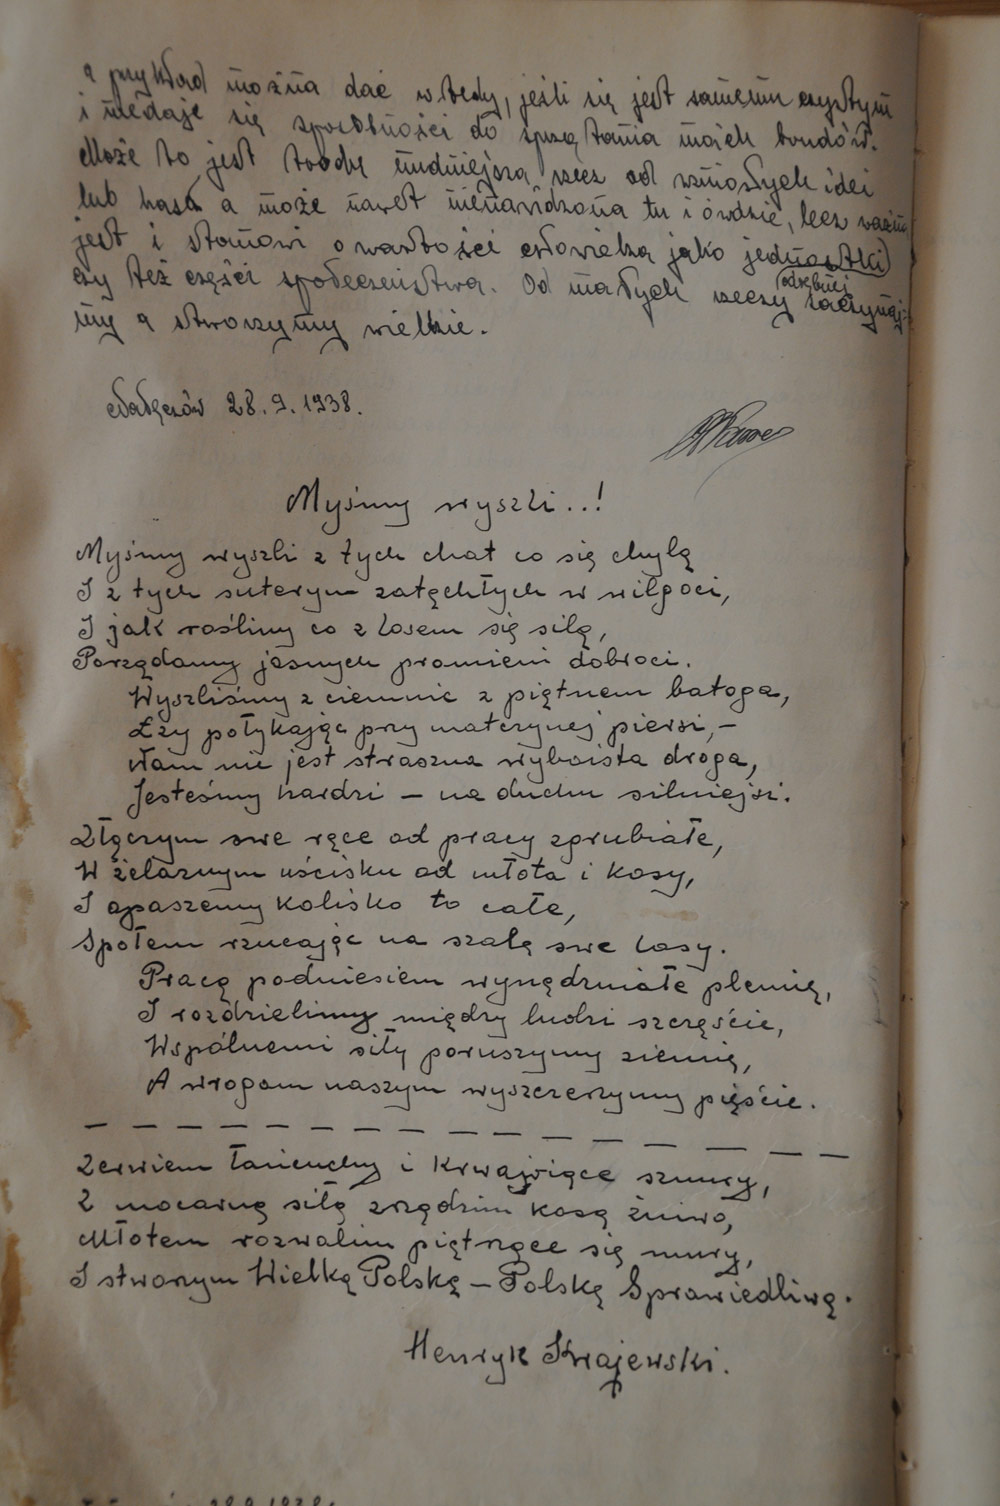 a przykład można dać wtedy, jeśli się jest samemu czystym
i niedaje się sposobności do sprzątania moich brudów.
Może to jest trochę mniejsza rzecz od wzniosłych idei
lub haseł a może nawet nienawidzona tu i ówdzie, lecz ważna
jest i stanowi o wartości człowieka jako jednostki
odrębnej
czy też części społeczeństwa. Od małych rzeczy zaczynaj-
my a stworzymy wielkie.
Nałęczów 28.9.1938.
Myśmy wyszli..!
Myśmy wyszli z tych chat co się chylą
I z tych suteryn zatęchłych w wilgoci,
I jak rośliny co z losem się silą,
Porządamy jasnych promieni dobroci.
Wyszliśmy z ciemnic z piętnem batoga,
Łzy połykając przy matczynej piersi,-
Nam nie jest straszna wyboista droga,
Jesteśmy hardzi - na duchu silniejsi.
Złączym swe ręce od pracy zgrubiałe,
W żelaznym uścisku od młota i kosy,
I opaszemy kolisko to całe,
Społem rzucając na szalę swe losy.
Pracą podniesiem wynędzniałe plemię,
I rozdzielimy między ludzi szczęście,
Wspólnemi siły poruszymy ziemię,
A wrogom naszym wyszczerzymy pięście.
— — — — — — — — — — — — — — — —
Zerwiem łańcuchy i krwawiące sznury,
Z mocarną siłą zrządzim kosą żniwo,
Młotem rozwalim piętrzące się mury,
I stworzym Wielką Polskę - Polskę Sprawiedliwą.
Henryk Krajewski.
28.9.1938r